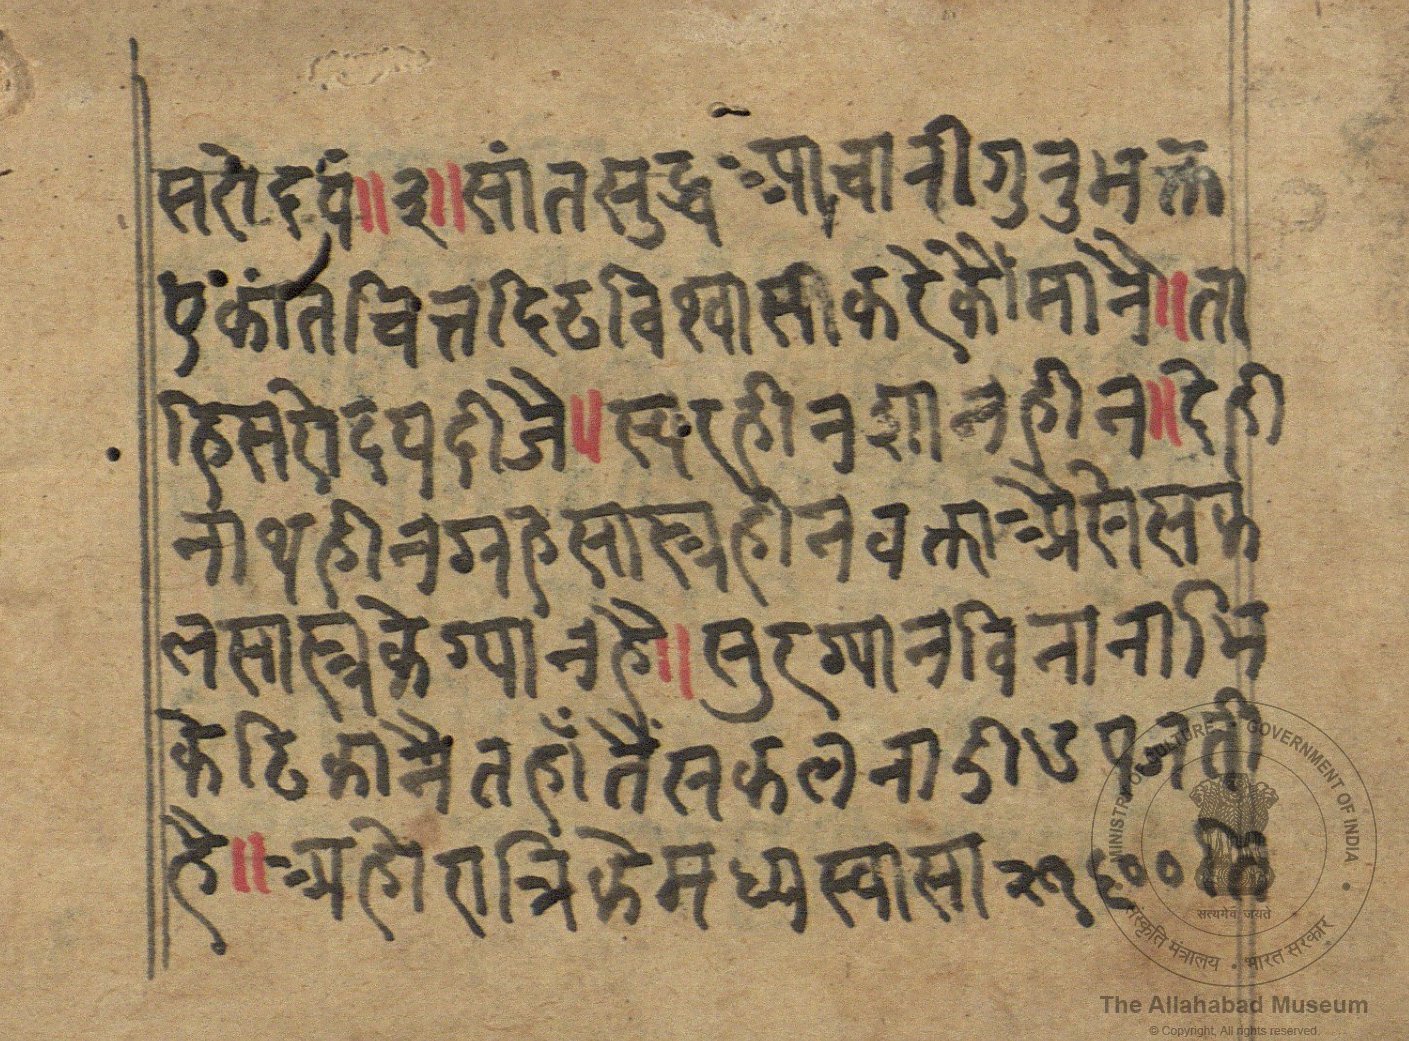 सरोदय॥३॥सांत सुद्ध आचानी गुनु भक्त
एंकांत चित्त दिठ विश्वासी करे कौं मानै॥ता
हि सरोदय दीजै॥ स्वर हीन ज्ञा न हीन॥देही
नाथ हीन ग्रह सास्त्र हीन वक्ता अैसे सक
ल सास्त्र के ग्यान है॥सुर ग्यान विना नाभि
के ठिकानै तहाँ तैं सकल नाडी उपजती
है॥अहो रात्रि के मध्य स्वासा २१६००
MINISTRY OF CULTURE GOVERNMENT OF INDIA
सत्यमेव जयते
संस्कृति मंत्रालय • भारत सरकार
The Allahabad Museum
© Copyright, All rights reserved.